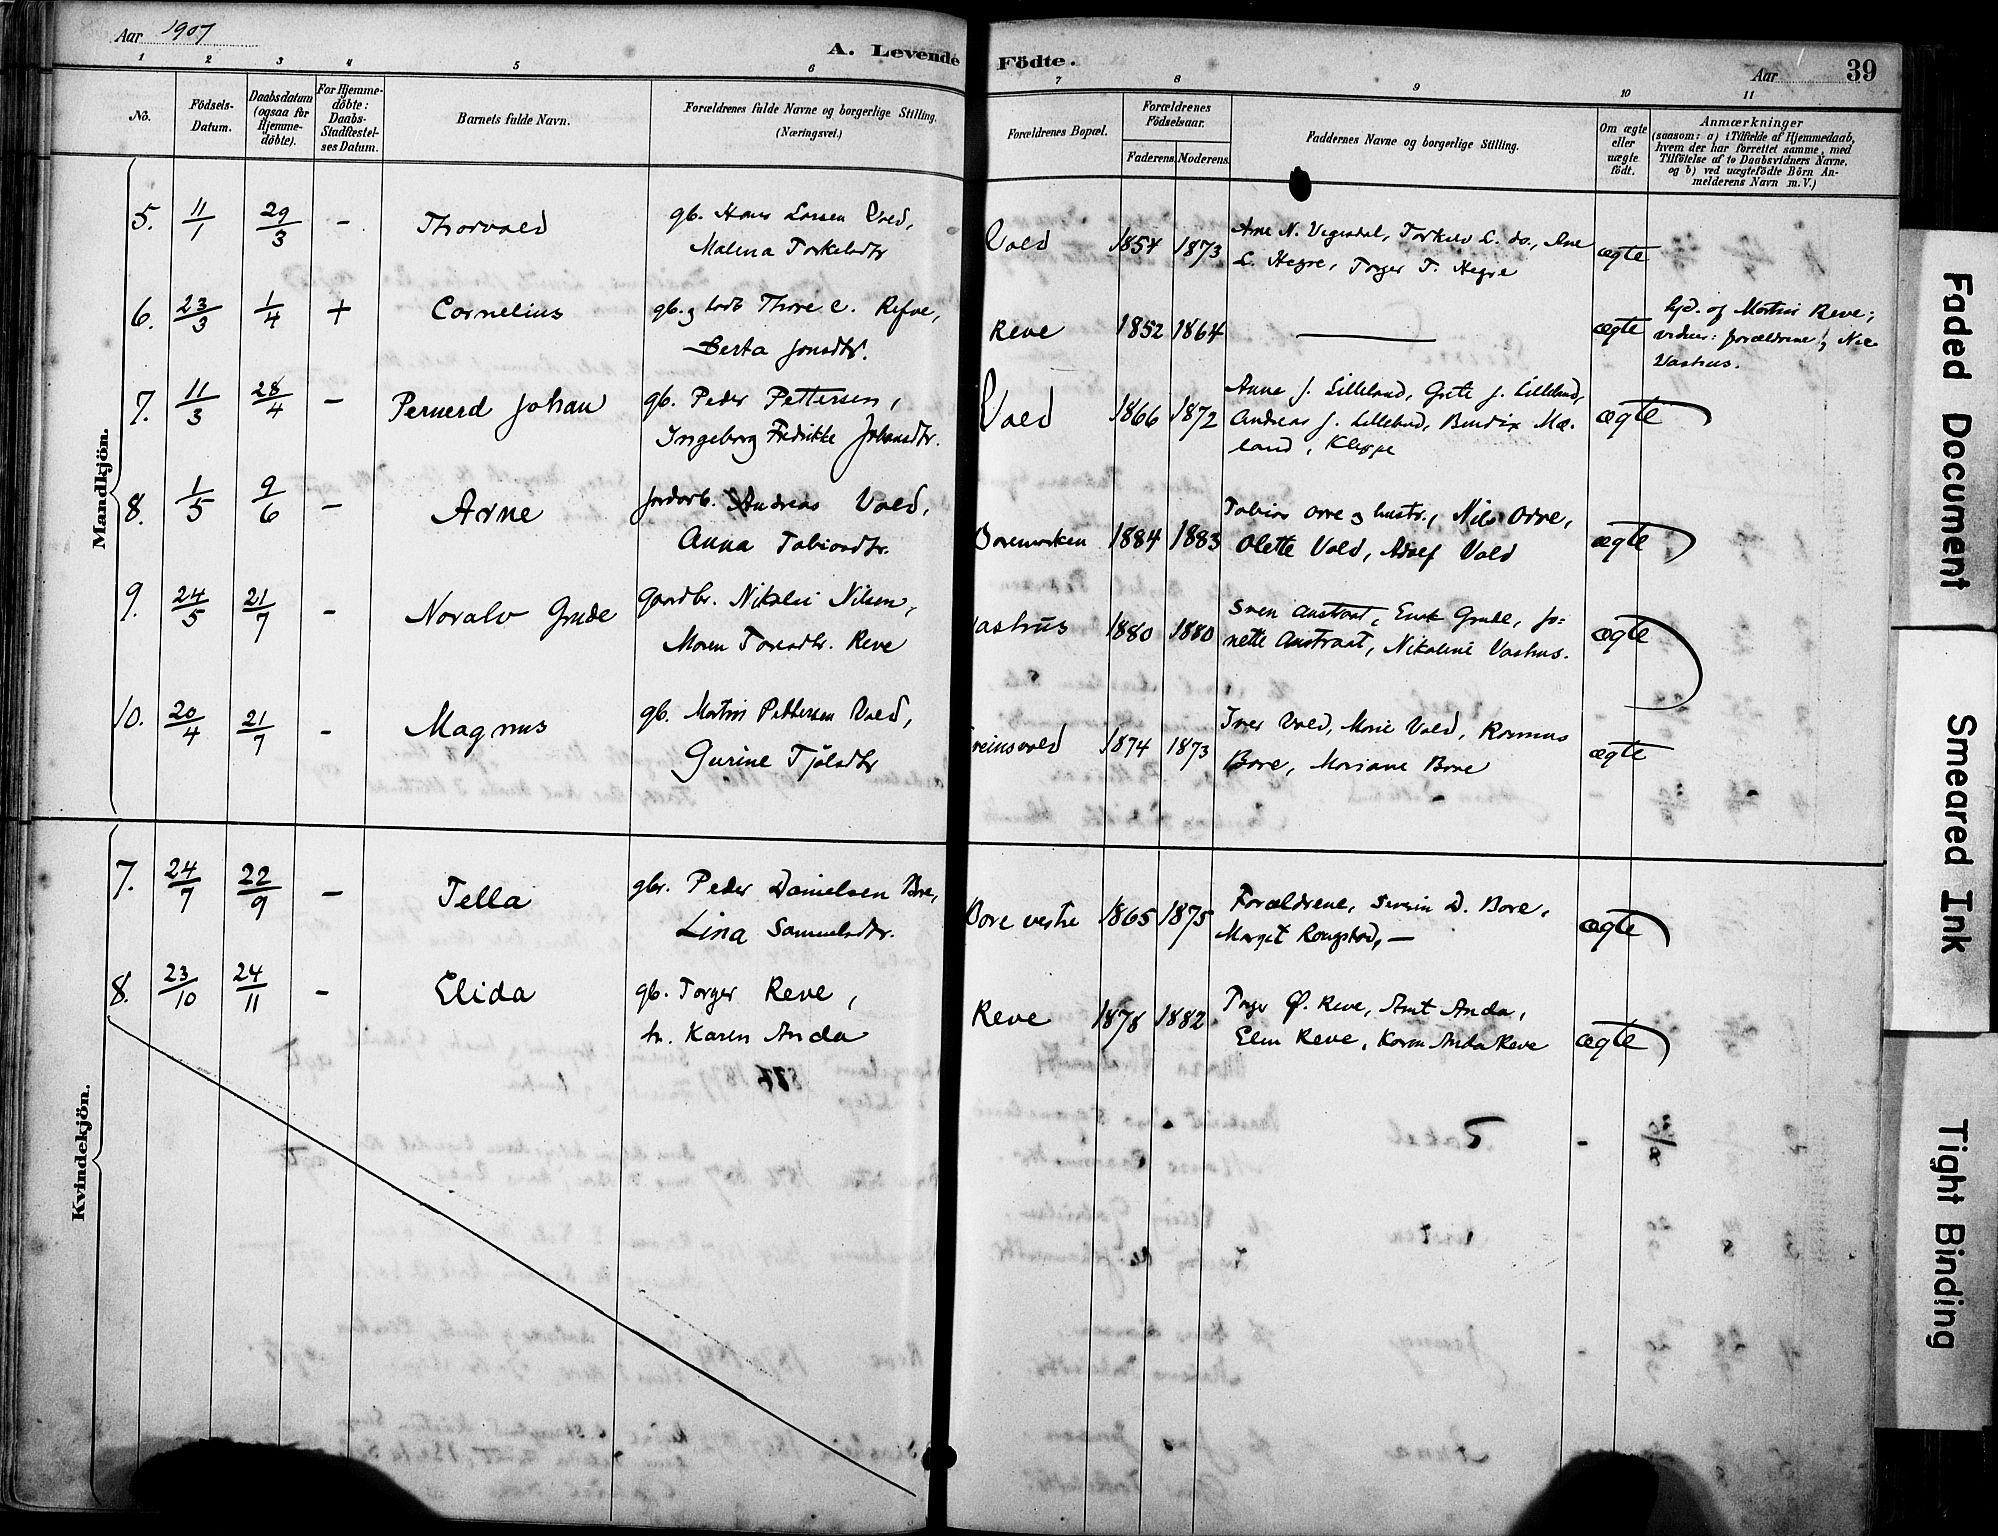 Aar 1907
A. Levende Födte.
Aar 39
1 2 3 4 5 6 7 8 9 10 11
No.
Födsels-
Datum.
Daabsdatum
(ogsaa for
Hjemme-
döbte).
For Hjemme-
döbte:
Daabs-
Stadfæstel-
ses Datum.
Barnets fulde Navn.
Forældrenes fulde Navne og borgerlige Stilling.
(Næringsvei.)
Forældrenes Bopæl.
Forældrenes
Födselsaar.
Faderens. Moderens.
Faddernes Navne og borgerlige Stilling.
Om ægte
eller
uægte
födt.
Anmærkninger
(saasom: a) i Tilfælde af Hjemmedaab,
hvem der har forrettet samme, med
Tilföielse af to Daabsvidners Navne.
og b) ved uægtefödte Börn An-
melderens Navn m.V.)
Mandkjön.
5. 11/1 29/3 - Thorvald
gb. Hans Larsen Vold,
Malena Torkelsdtr
Vold 1854 1873
Arne N. Vigesdal, Torkel L. do., Ane
L. Hegre, Torger T. Hegre
ægte
6. 23/3 1/4 + Cornelius
gb. g Thore C. Refve,
Berta Jonsdtr.
Reve 1852 1864
ægte
hjd. af Martin Reve;
vidner: forældrene,
Vashus.
7. 11/3 28/4 - Pernerd Johan
gb. Peder Pettersen,
Ingeborg Fredrikke Johansdtr.
Vold 1866 1872
Anne J. Lilleland, Grete J. Lilleland,
Andreas J. Lilleland, Bendix Mæ-
land, Kleppe
ægte
8. 1/5 9/6 - Arne
jordarb. Andreas Vold,
Anna Tobiasdtr.
Boremarken 1884 1883
Tobias Orre g hustr., Nils Orre,
Olette Vold, Adolf Vold
ægte
9. 24/5 21/7 - Noralv Grude
gaardbr. Nikolai Nilsen,
Maren Toresdtr. Reve
ashus 1880 1880
Sven Austraat, Enok Grude, Jo-
nette Austraat, Nikoline Vashus.
ægte
10. 20/4 21/7 - Magnus
gb. Martin Pettersen Vold,
Gurine Tjölsdtr
einsvold 1874 1873
Iver Vold, Marie Vold, Rasmus
Bore, Mariane Bore
ægte
Kvindekjön.
7. 24/7 22/9 - Tella
gbr. Peder Danielsen Bore,
Lina Samuelsdtr.
Bore vestre 1865 1875
Forældrene, Sverin D. Bore,
Margit Rongstad, —
ægte
8. 23/10 24/11 - Elida
gb. Torger Reve,
h. Karen Anda
Reve 1878 1882
Torger Ø. Reve, Arnt Anda,
Elen Reve, Karen Anda Reve
ægte
Faded Document
Smeared Ink
Tight Binding